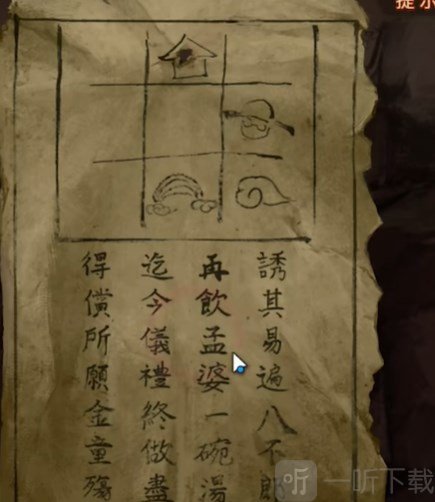 提示
誘其易遍八不
再飲孟婆一碗湯
迄今儀禮終做盡
得償所願金童殤
听 一听下载